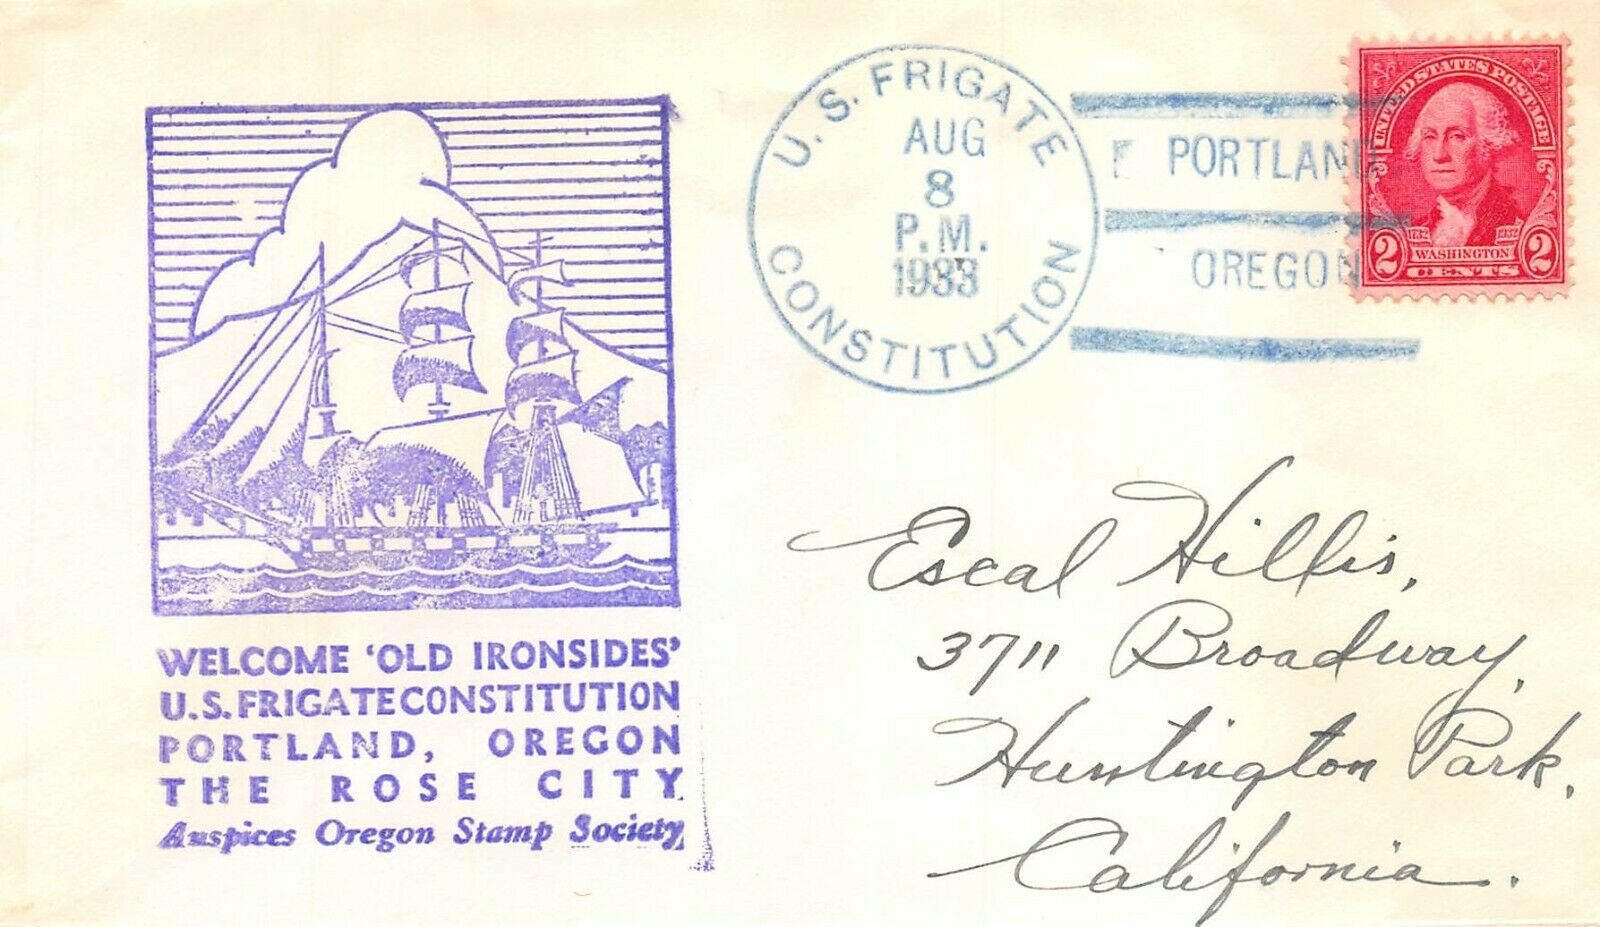 U.S. FRIGATE
AUG
8
P.M.
1933
CONSTITUTION
PORTLAND,
OREGON
UNITED STATES POSTAGE
1732 1932
WASHINGTON
2 CENTS 2
WELCOME 'OLD IRONSIDES'
U.S. FRIGATE CONSTITUTION
PORTLAND, OREGON
THE ROSE CITY
Auspices Oregon Stamp Society
Escal Hillis,
3711 Broadway,
Huntington Park,
California.